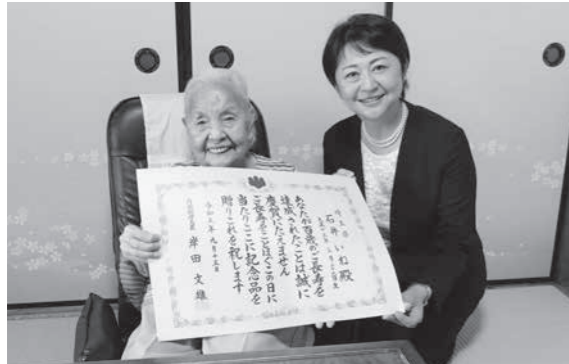 石井いね殿
あなたが百歳のご長寿を
達成されたことは誠に
慶賀にたえません
ご長寿をことほぐこの日に
当たりここに記念品を
贈りこれを祝します
岸田文雄